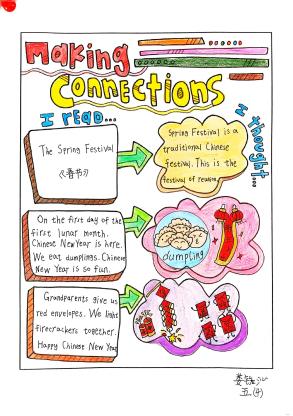 Making
Connections
I read...
I thought...
The Spring Festival
《春节》
Spring Festival is a
traditional Chinese
festival. This is the
festival of reunion.
On the first day of the
first lunar month.
Chinese New Year is here.
We eat dumplings. Chinese
New Year is so fun.
dumpling
Grandparents give us
red envelopes. We light
firecrackers together.
Happy Chinese New Year
五.(4)